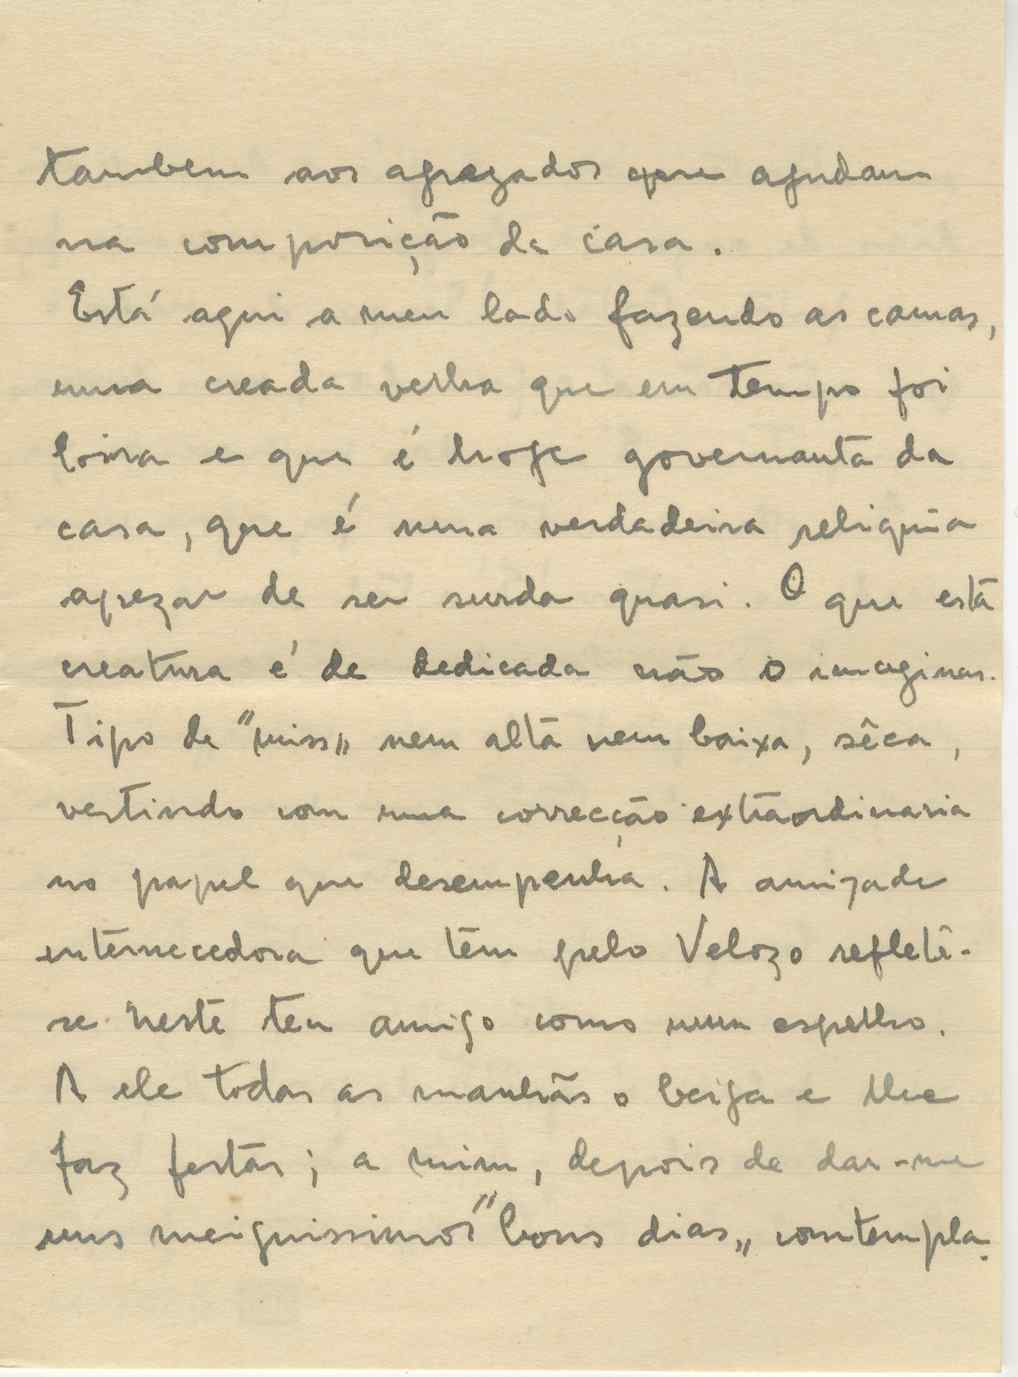 tambem aos agregados que ajudam
na composição da casa.
Está aqui a meu lado fazendo as camas,
uma creada velha que em tempo foi
loira e que é hoje governanta da
casa, que é uma verdadeira reliquia
apezar de ser surda quasi. O que esta
creatura é de dedicada não o imaginas.
Tipo de "miss„ nem alta nem baixa, sêca,
vestindo com uma correcção extraordinaria
no papel que desempenha. A amizade
enternecedora que têm pelo Velozo reflete-
se neste teu amigo como num espelho.
A ele todas as manhãs o beija e lhe
faz festas; a mim, depois de dar-me
uns meiguissimos "bons dias„ contempla-